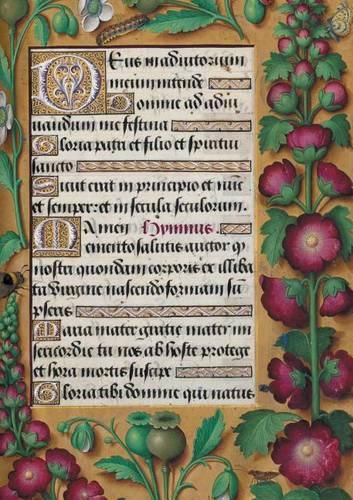 Deus in adiutorium
meum intende
Domine ad adiu
uandum me festina
Gloria patri et filio et spiritui
sancto
Sicut erat in principio et nūc
et semper: et in secula seculorum.
Amen Hymnus.
Memento salutis auctor q
nostri quondam corporis ex illiba
ta uirgine nascendo formam sū
pseris
Maria mater gratie mater mi
sericordie tu nos ab hoste protege
et hora mortis suscipe
Gloria tibi domine qui natus